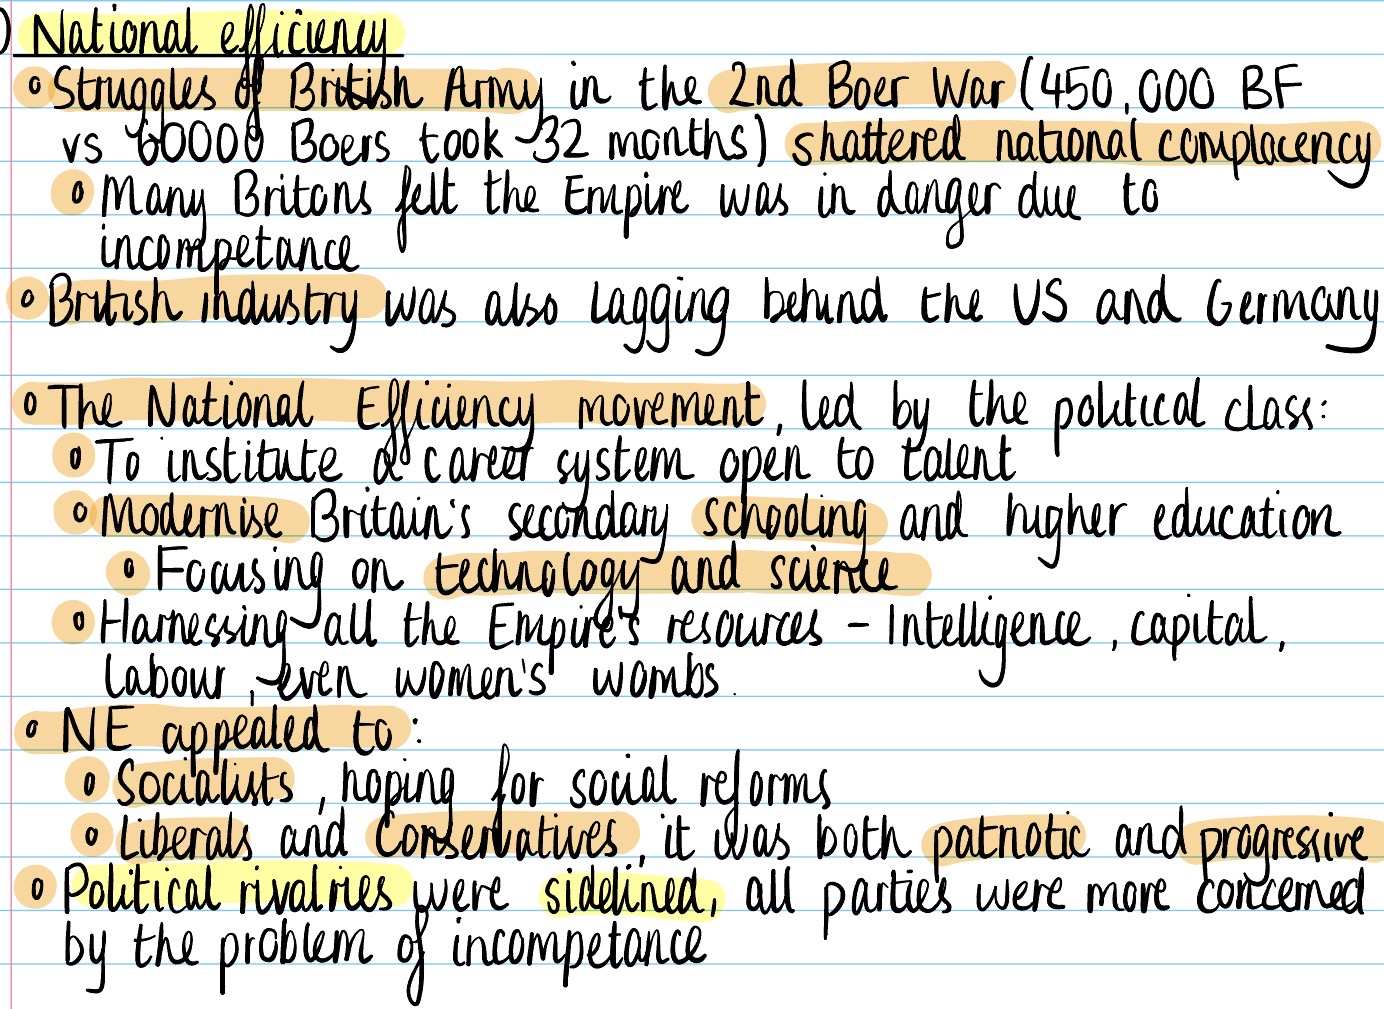 National efficiency
Struggles of British Army in the 2nd Boer War (450,000 BF
vs 60000 Boers took 32 months) shattered national complacency
Many Britons felt the Empire was in danger due to
incompetance
British industry was also lagging behind the US and Germany
The National Efficiency movement, led by the political class:
To institute a career system open to talent
Modernise Britain's secondary schooling and higher education
Focusing on technology and science
Harnessing all the Empire's resources - Intelligence, capital,
labour, even women's wombs.
NE appealed to:
Socialists, hoping for social reforms
Liberals and Conservatives, it was both patriotic and progressive
Political rivalries were sidelined, all parties were more concerned
by the problem of incompetance